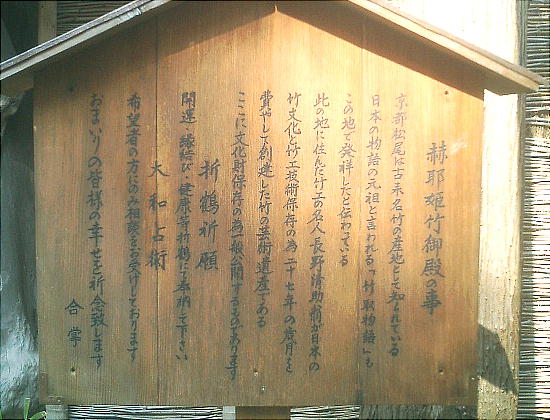 赫耶姫竹御殿の事
京都松尾は古来名竹の産地として知られている
日本の物語の元祖と言われる「竹取物語」も
この地で発祥したと伝わっている
此の地に住んだ竹工の名人長野清助翁が日本の
竹文化と竹工技術保存の為二十七年の歳月を
費やして創造した竹の芸術遺産である
ここに文化財保存の為一般公開するものであります
折鶴祈願
開運・縁結び・健康等祈鶴にて奉納して下さい
大和占術
希望者の方にのみ相談をお受けしております
おまいりの皆様の幸せを祈念致します
合掌